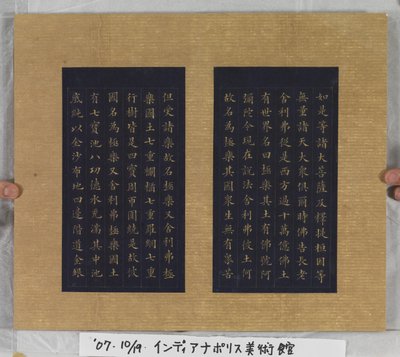 如是等諸大菩薩及釋提桓因等
無量諸天大衆俱爾時佛告長老
舍利弗從是西方過十萬億佛土
有世界名曰極樂其土有佛號阿
彌陀今現在說法舍利弗彼土何
故名為極樂其國衆生無有衆苦
但受諸樂故名極樂又舍利弗極
樂國土七重欄楯七重羅網七重
行樹皆是四寶周帀圍繞是故彼
國名為極樂又舍利弗極樂國土
有七寶池八功德水充滿其中池
底純以金沙布地四邊階道金銀
'07. 10/19. インディアナポリス美術館